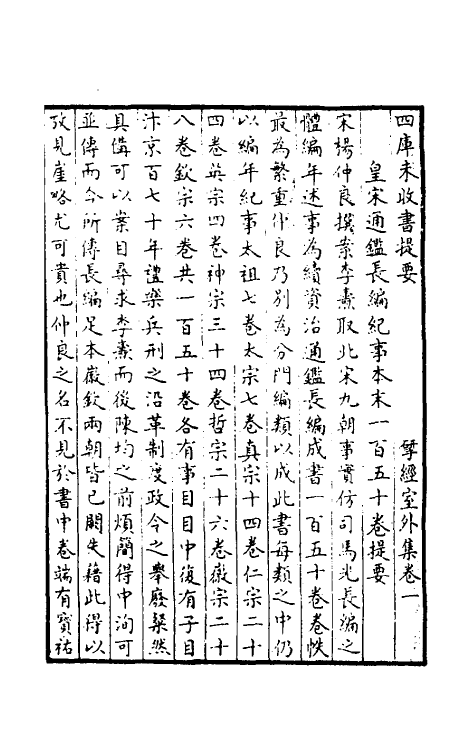 四庫未收書提要　揅經室外集卷一
皇宋通鑑長編紀事本末一百五十卷提要
宋楊仲良撰案李燾取北宋九朝事實仿司馬光長編之
體編年述事為續資治通鑑長編成書一百五十卷卷帙
最為繁重仲良乃別為分門編類以成此書每類之中仍
以編年紀事太祖七卷太宗七卷真宗十四卷仁宗二十
四卷英宗四卷神宗三十四卷哲宗二十六卷徽宗二十
八卷欽宗六卷共一百五十卷各有事目目中復有子目
汴京百七十年禮樂兵刑之沿革制度政令之舉廢粲然
具備可以案目尋求李燾而後陳均之前煩簡得中洵可
並傳而今所傳長編足本徽欽兩朝皆已闕失藉此得以
攷見崖略尤可貴也仲良之名不見於書中卷端有寶祐